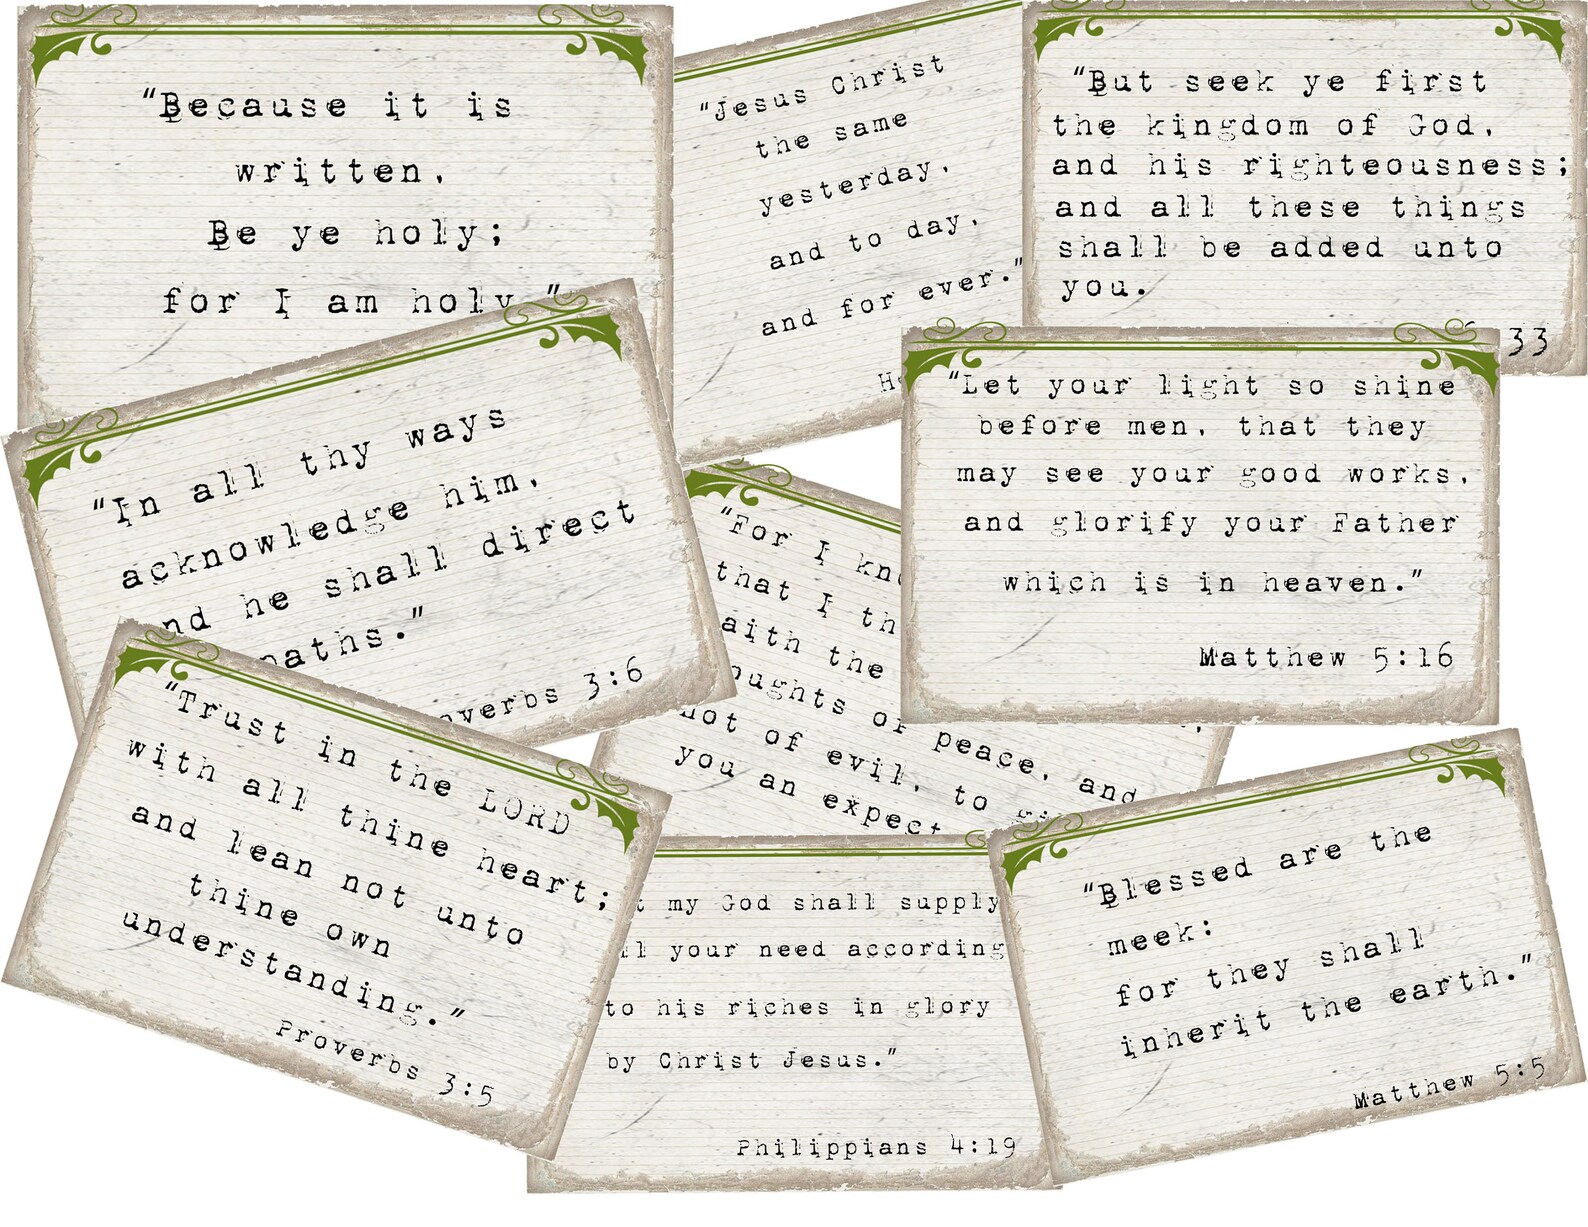 "Because it is
written,
Be ye holy;
for I am holy."
"Jesus Christ
the same
yesterday,
and to day,
and for ever."
"But seek ye first
the kingdom of God,
and his righteousness;
and all these things
shall be added unto
you.
33
"In all thy ways
acknowledge him,
and he shall direct
paths."
Proverbs 3:6
"For I
that I
the
of peace, and
not of evil, to
you an
"Let your light so shine
before men, that they
may see your good works,
and glorify your Father
which is in heaven."
Matthew 5:16
"Trust in the LORD
with all thine heart;
and lean not unto
thine own
understanding."
Proverbs 3:5
my God shall supply
your need according
to his riches in glory
by Christ Jesus."
Philippians 4:19
"Blessed are the
meek:
for they shall
inherit the earth."
Matthew 5:5